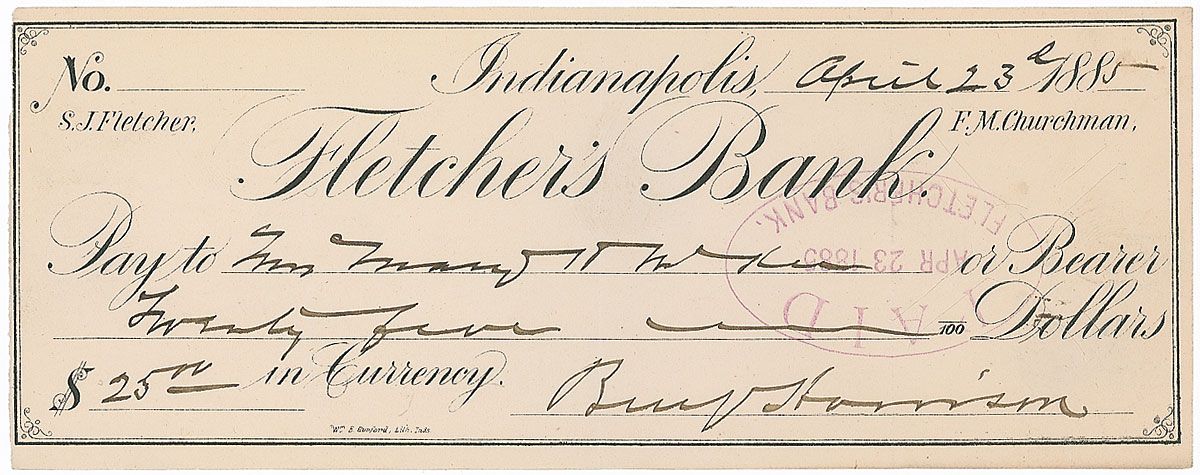 No. Indianapolis, April 23d 1885
S.J. Fletcher, F.M. Churchman,
Fletcher's Bank.
Pay to Mrs Mary H McKee or Bearer
Twenty five 100 Dollars
$ 25 00 in Currency.
Benj Harrison
Wm B. Burford, Lith. Inds.
FLETCHER'S BANK.
APR 23 1885
PAID